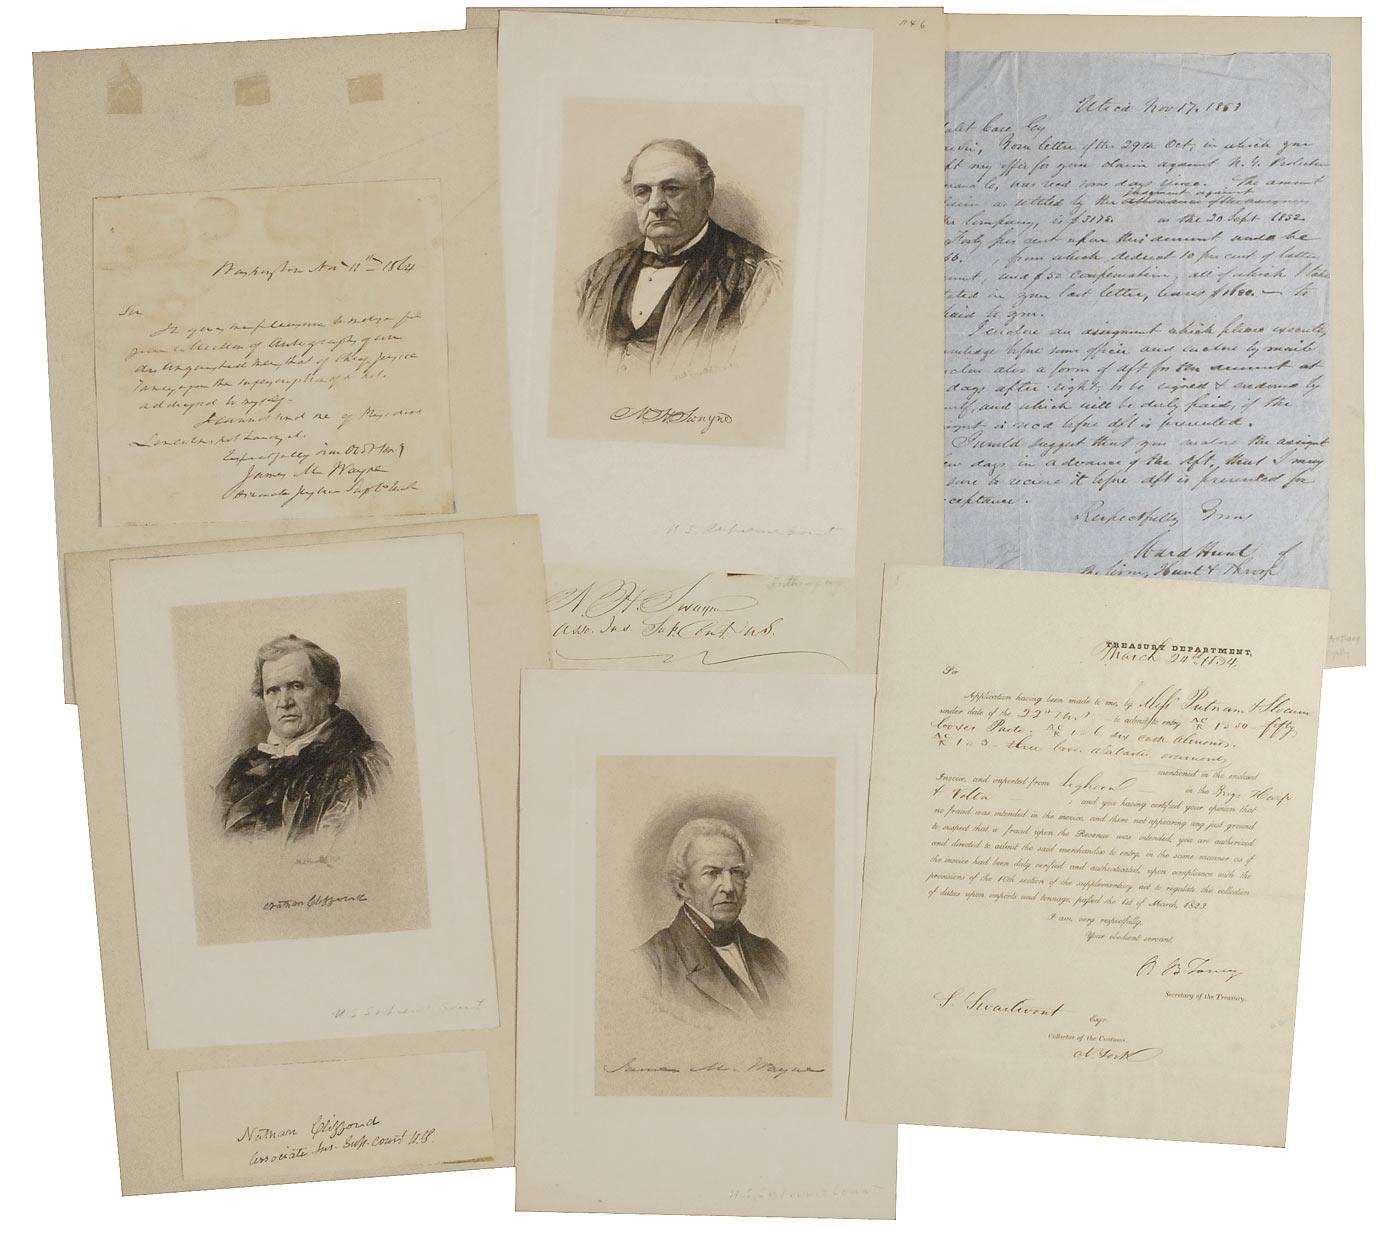 Washington Nov 11th 1864
Sir
It gives me pleasure to
your collection of Autographs of our
distinguished men, that of Chief Justice
Taney upon the superscription of a
addressed to myself.
I cannot send one of President
Lincoln's, not having it.
Respectfully Your Obt Servt
James M. Wayne
Associate Justice Sup. Ct. U.S.
N. H. Swayne
U.S. Supreme Court
N. H. Swayne
Asso. Jus. Sup. Court U.S.
1146
Utica Nov 17. 1853
Case Esq
Your letter of the 29th Oct, in which you
my offer for your claim against N. Y. Protection
was recd some days since. The amount
judgment against
as settled by the allowance of the assignee
Company, is $3175. as the 20 Sept 1852.
Forty per cent upon this amount would be
, from which deduct 10 per cent of latter
and $50 compensation, all of which I take
stated in your last letter, leaves $ — to
paid to you.
I enclose an assignment which please execute
acknowledge before some officer and enclose by mail
also a form of dft for the amount at
days after sight, to be signed & endorsed by
and which will be duly paid, if the
is recd before dft is presented.
I would suggest that you enclose the assignt
few days in advance of the dft, that I may
sure to receive it before dft is presented for
acceptance.
Respectfully Yours
Ward Hunt of
the firm, Hunt &
Nathan Clifford
U.S. Supreme Court
Nathan Clifford
Associate Jus. Sup. Court U.S.
James M. Wayne
U.S. Supreme Court
TREASURY DEPARTMENT,
March 24th 1834
Sir
Application having been made to me, by Messrs Putnam & Slocum
under date of the 22nd Inst to admit to entry 1 a 50 — fifty
boxes Paste. 1 - 6 six cask Almonds.
1 a 3 - three boxes Alabaster ornaments
mentioned in the enclosed
Invoice, and imported from Leghorn in the Brigs Harp
& Volta ; and you having certified your opinion that
no fraud was intended in the invoice, and there not appearing any just ground
to suspect that a fraud upon the Revenue was intended, you are authorized
and directed to admit the said merchandise to entry, in the same manner as if
the invoice had been duly verified and authenticated, upon compliance with the
provisions of the 10th section of the supplementary act to regulate the collection
of duties upon imports and tonnage, passed the 1st of March, 1823.
I am, very respectfully,
Your obedient servant,
R. B. Taney
Secretary of the Treasury.
S. Swartwout
Esqr.
Collector of the Customs.
N. York